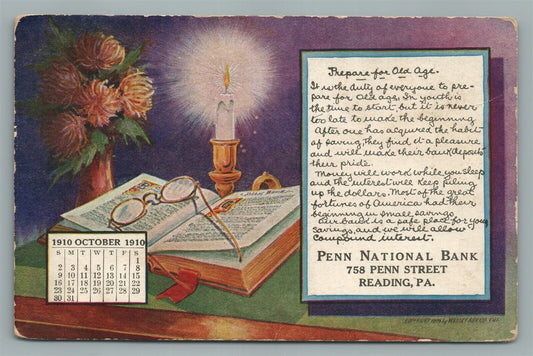 Prepare for Old Age.
It is the duty of everyone to pre-
pare for Old age, for youth is
the time to start, but it is never
too late to make the beginning.
After one has acquired the habit
of saving, they find it a pleasure
and will make their bank deposits
their pride.
Money will work while you sleep
and the interest will keep piling
up the dollars. Most of the great
fortunes of America had their
beginning in small savings
Our bank is a safe place for your
savings, and we will allow
compound interest.
PENN NATIONAL BANK
758 PENN STREET
READING, PA.
1910 OCTOBER 1910
S M T W T F S
1
2 3 4 5 6 7 8
9 10 11 12 13 14 15
16 17 18 19 20 21 22
23 24 25 26 27 28 29
30 31